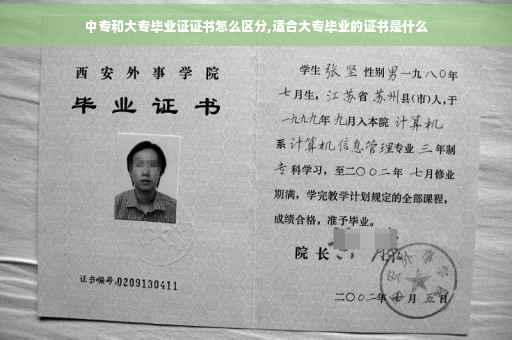 中专和大专毕业证证书怎么区分,适合大专毕业的证书是什么
西安外事学院
毕业证书
证书编号:0209130411
学生 张坚 性别男一九八〇年
七月生，江苏省 苏州县(市)人,于
一九九九年 九月入本院 计算机
系 计算机信息管理专业 三 年制
专科学习，至二〇〇二年 七月修业
期满，学完教学计划规定的全部课程，
成绩合格，准予毕业。
院长
二〇〇二年 月 五日